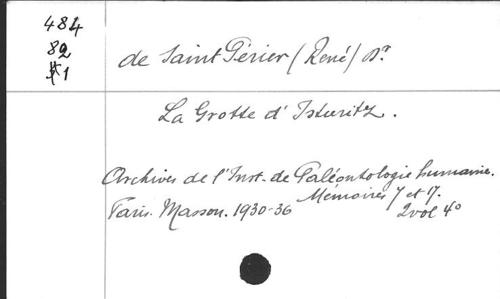 484
82
1
de Saint Périer (René) Dr
La Grotte d'Isturitz.
Archives de l'Inst. de Paléontologie humaine.
Mémoires 7 et 17.
Paris. Masson. 1930-36 2 vol 4o